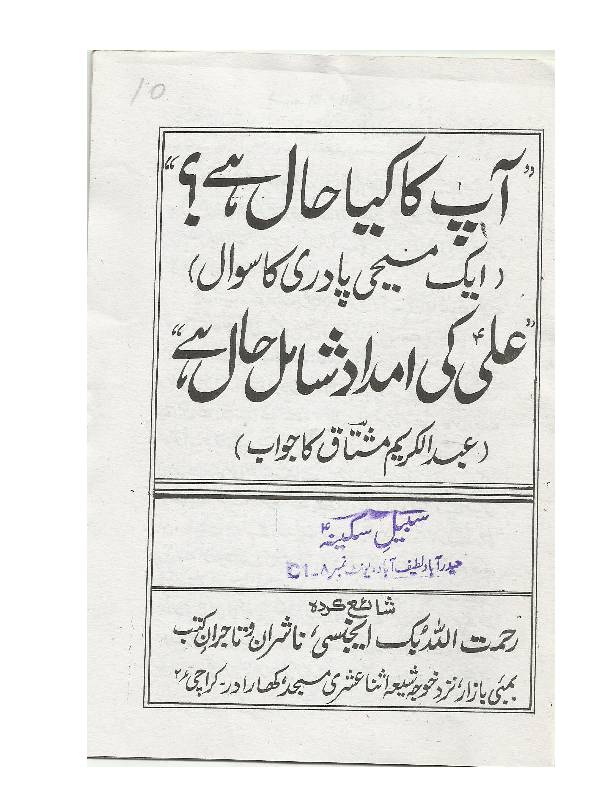 10
"آپ کا کیا حال ہے؟"
(ایک مسیحی پادری کا سوال)
"علیؑ کی امداد شامل حال ہے"
(عبدالکریم مشتاق کا جواب)
سبیلِ سکینہؑ
حیدرآباد لطیف آباد، یونٹ نمبر ۸-C1
شائع کردہ
رحمت اللہ بک ایجنسی، ناشران و تاجران کتب
بمبئی بازار، نزد خوجہ شیعہ اثنا عشری مسجد، کھارادر- کراچی ۲